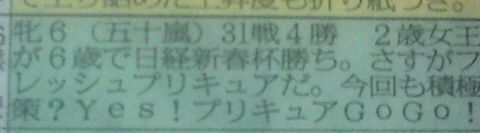 上り詰めた上昇度も折り紙つき。
牝6（五十嵐）31戦4勝　2歳女王
が6歳で日経新春杯勝ち。さすがフ
レッシュプリキュアだ。今回も積極
策？Yes！プリキュアGoGo！